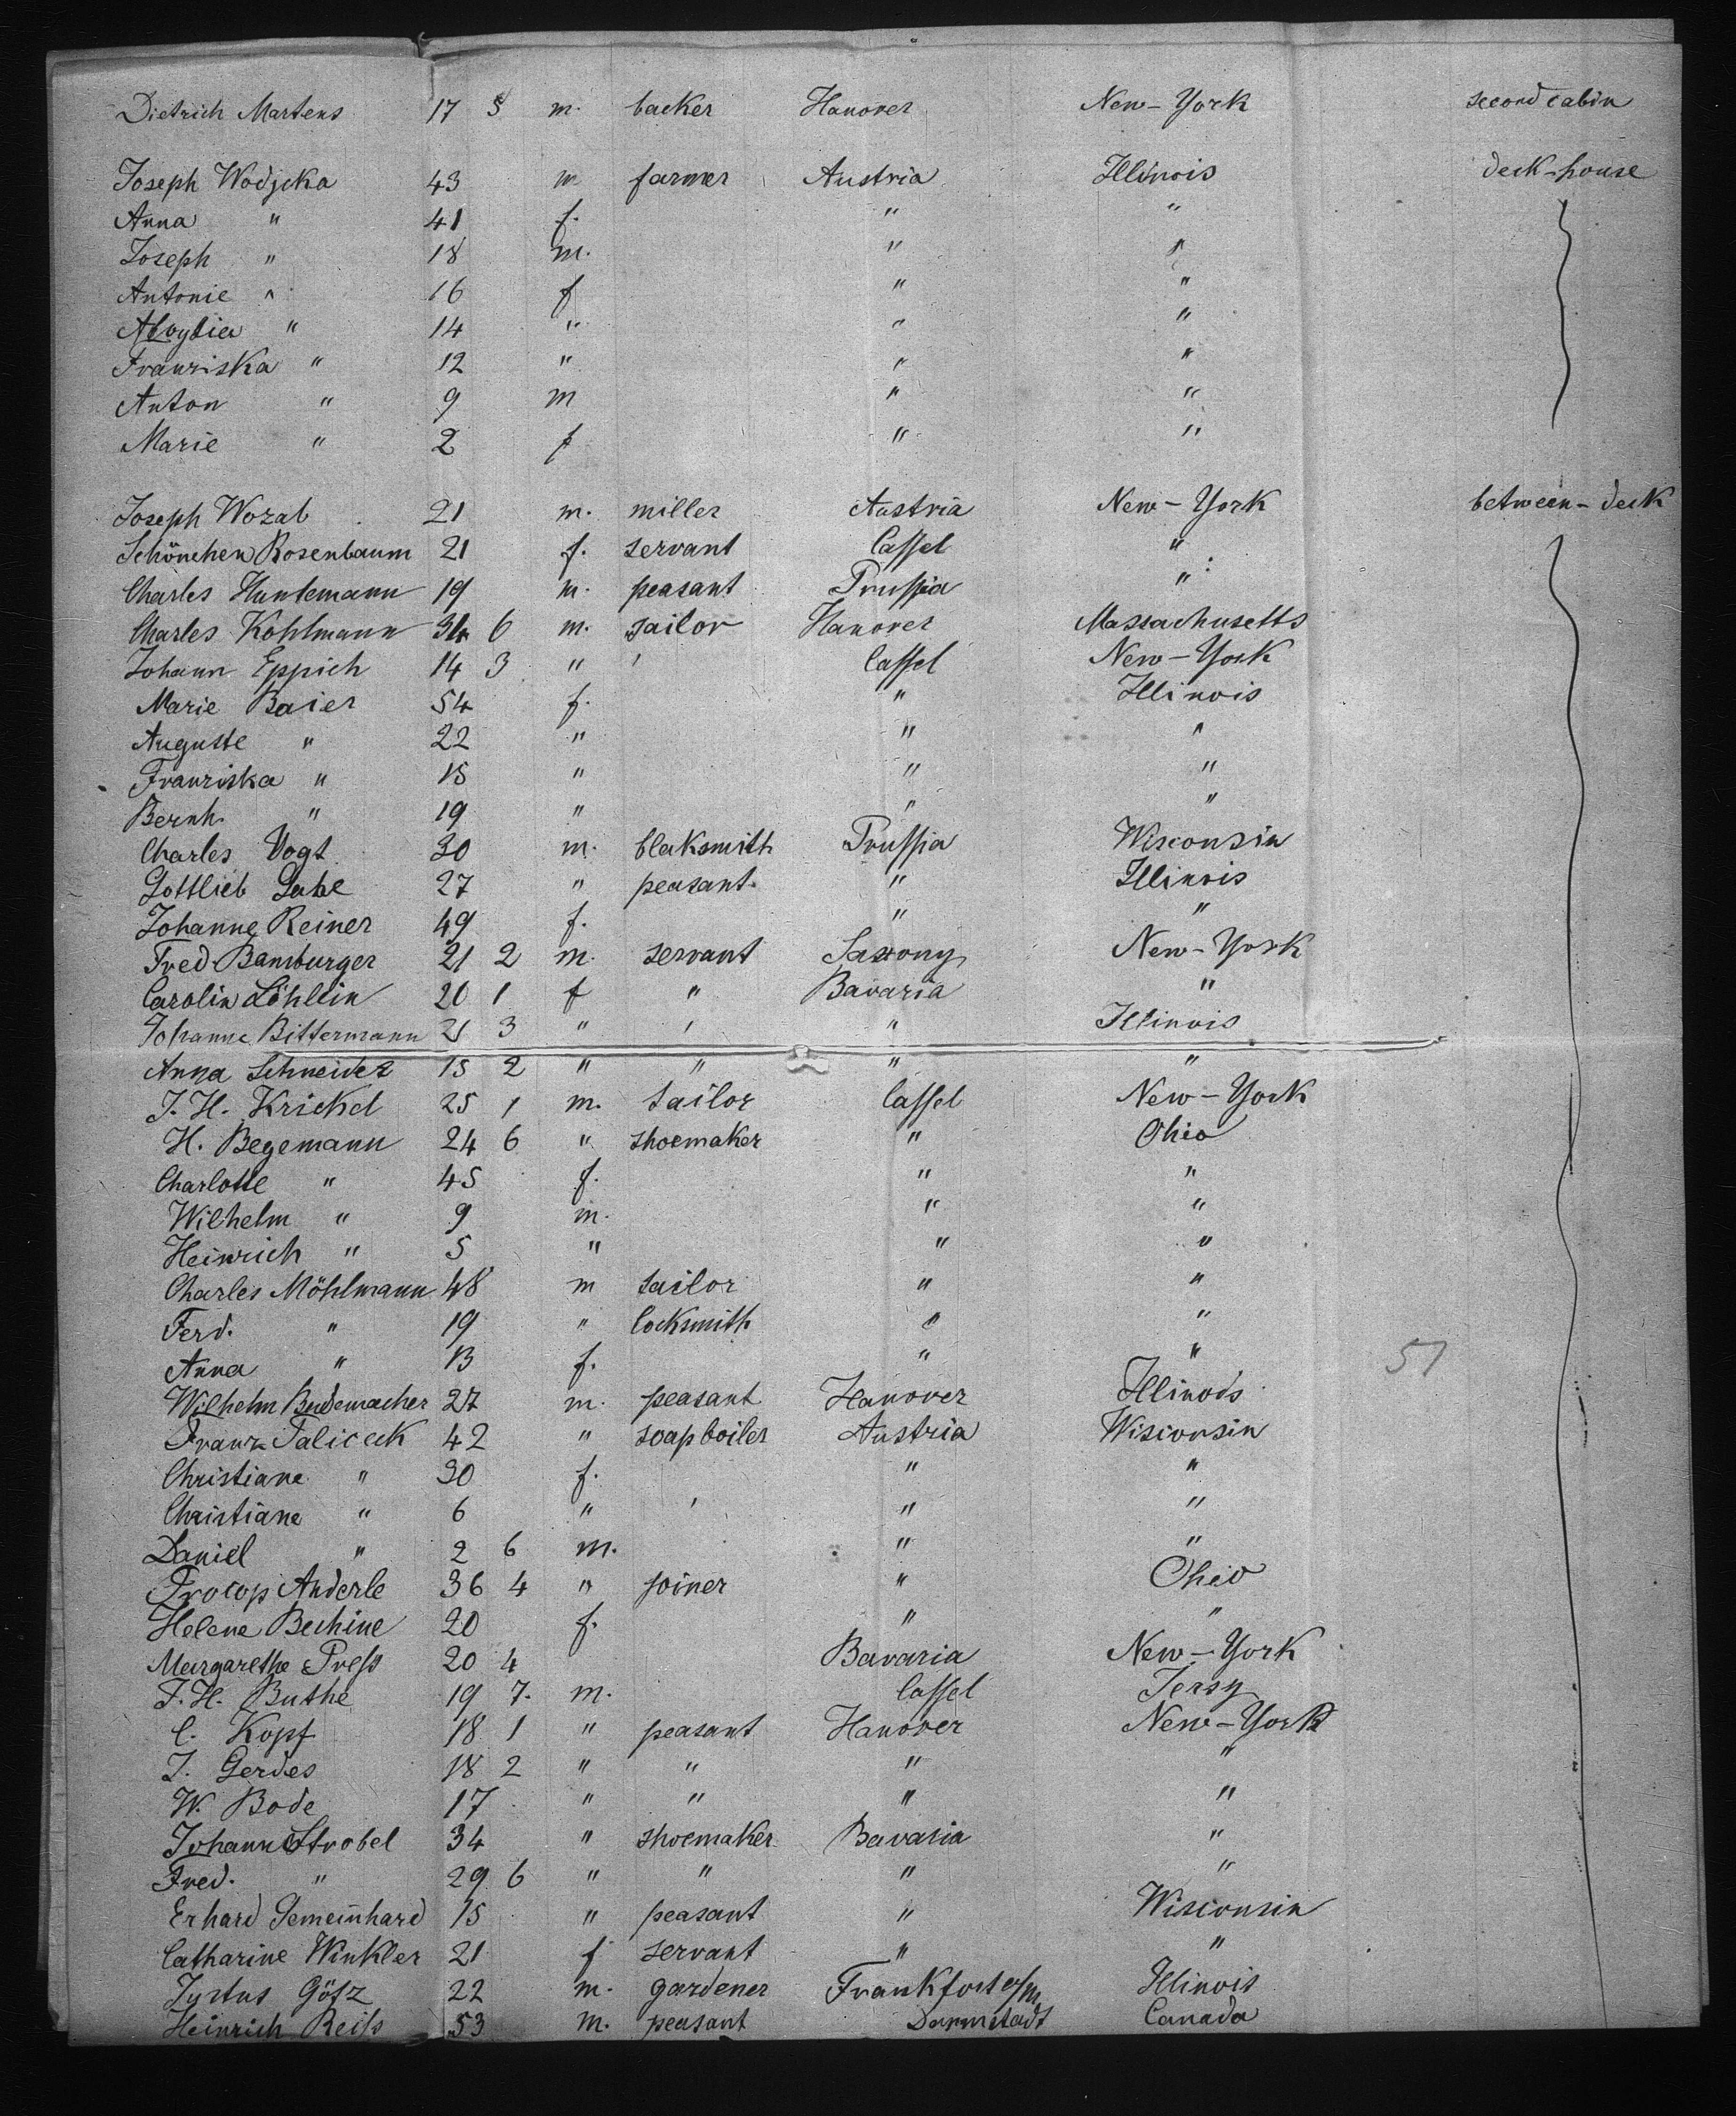 Dietrich Martens 17 5 m. backer Hanover New-York second cabin
Joseph Wodjcka 43 m farmer Austria Illinois deck-house
Anna " 41 f. " "
Joseph " 18 m. " "
Antonie " 16 f " "
Aloysia " 14 " " "
Franziska " 12 " " "
Anton " 9 m " "
Marie " 2 f " "
Joseph Wozab 21 m. miller Austria New-York between-deck
Schönchen Rosenbaum 21 f. servant Cassel "
Charles Huntemann 19 m. peasant Prussia "
Charles Kohlmann 34 6 m. sailor Hanover Massachusetts
Johann Eppich 14 3 " ' Cassel New-York
Marie Baier 54 f. " Illinois
Auguste " 22 " " "
Franziska " 15 " " "
Bernh. " 19 " " "
Charles Vogt 30 m. blaksmith Prussia Wisconsin
Gottlieb 27 " peasant. " Illinois
Johanne Reiner 49 f. " "
Fred Bamburger 21 2 m. servant Saxony New-York
Carolin Löhlein 20 1 f " Bavaria "
Johanne Bittermann 21 3 " ' " Illinois
Anna Schneider 15 2 " " " "
J. H. Krickel 25 1 m. tailor Cassel New-York
H. Begemann 24 6 " shoemaker " Ohio
Charlotte " 45 f. " "
Wilhelm " 9 m. " "
Heinrich " 5 " " "
Charles Möhlmann 48 m tailor " "
Ferd. " 19 " locksmith " "
Anna " 13 f. " " 51
Wilhelm Budemacher 27 m. peasant Hanover Illinois
Franz Taliceck 42 " soapboiler Austria Wisconsin
Christiane " 30 f. " "
Christiane " 6 " ' " "
Daniel " 2 6 m. " "
Procop Anderle 36 4 " joiner " Ohio
Helene Bechine 20 f. " "
Margarethe Press 20 4 Bavaria New-York
J. H. Buthe 19 7. m. Cassel Jersy
C. Kopf 18 1 " peasant Hanover New-York
J. Gerdes 18 2 " " " "
W. Bode 17 " " " "
Johann Strobel 34 " shoemaker Bavaria "
Fred. " 29 6 " " " "
Erhard Gemeinhard 15 " peasant " Wisconsin
Catharine Winkler 21 f servant " "
Justus Götz 22 m. gardener Frankfort o/m Illinois
Heinrich Reiss 53 m. peasant Darmstadt Canada